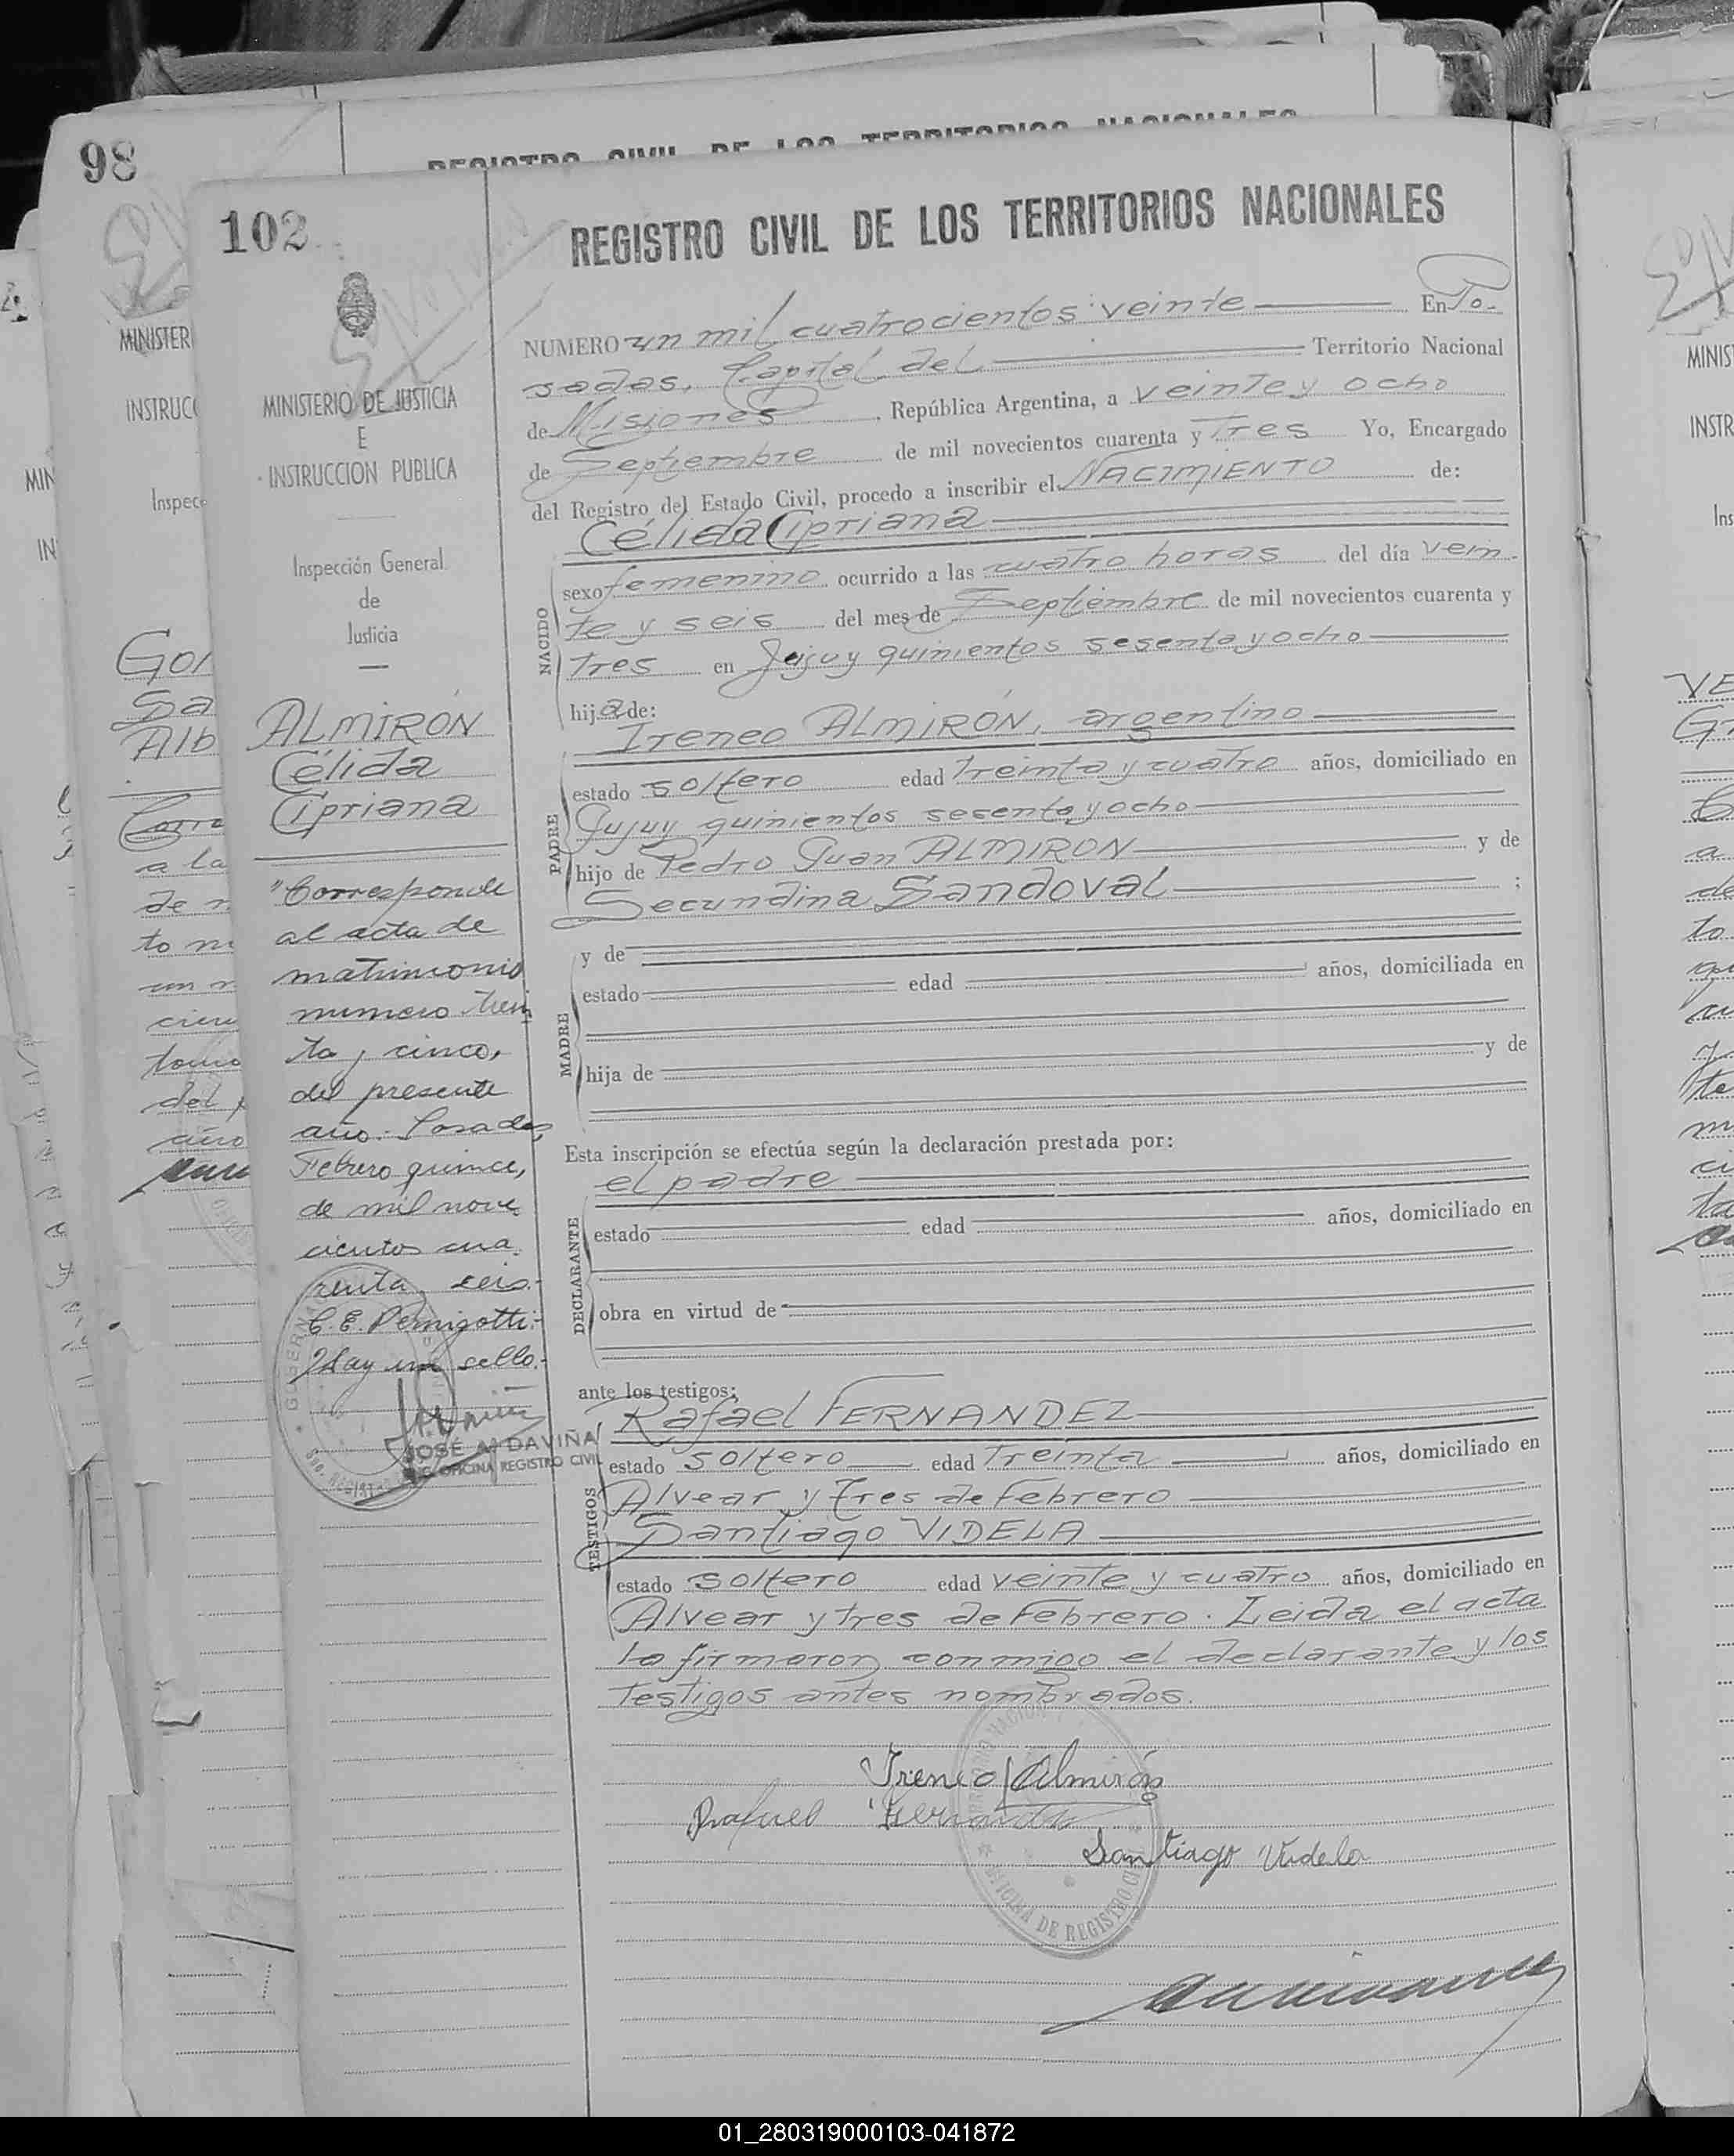 98
REGISTRO CIVIL DE LOS TERRITORIOS NACIONALES
102
REGISTRO CIVIL DE LOS TERRITORIOS NACIONALES
NUMERO un mil cuatrocientos veinte En Po-
sadas, Capital del Territorio Nacional
de Misiones República Argentina, a veinte y ocho
de Septiembre de mil novecientos cuarenta y Tres Yo, Encargado
del Registro del Estado Civil, procedo a inscribir el NACIMIENTO de:
Célida Cipriana
NACIDO
sexo femenino ocurrido a las cuatro horas del día vein-
te y seis del mes de Septiembre de mil novecientos cuarenta y
tres en Jujuy quinientos sesenta y ocho
hija de:
PADRE
Ireneo ALMIRÓN, argentino
estado soltero edad treinta y cuatro años, domiciliado en
Jujuy quinientos sesenta y ocho
hijo de Pedro Juan ALMIRON y de
Secundina Sandoval ;
MADRE
y de
estado edad años, domiciliada en
hija de y de
Esta inscripción se efectúa según la declaración prestada por:
DECLARANTE
el padre
estado edad años, domiciliado en
obra en virtud de
ante los testigos:
TESTIGOS
Rafael FERNANDEZ
estado soltero edad Treinta años, domiciliado en
Alvear y Tres de Febrero
Santiago VIDELA
estado soltero edad veinte y cuatro años, domiciliado en
Alvear y tres de Febrero. Leida el acta
la firmaron conmigo el declarante y los
testigos antes nombrados.
Ireneo Almirón
Rafael Fernandez
Santiago Videla
OFICINA DE REGISTRO CIVIL
MINISTERIO DE JUSTICIA
E
INSTRUCCION PUBLICA
Inspección General
de
Justicia
ALMIRÓN
Célida
Cipriana
"Corresponde
al acta de
matrimonio
numero trein
ta y cinco,
del presente
año. Posadas,
Febrero quince,
de mil nove
cientos cua
renta seis.-
C. E. Pernigotti.-
Hay un sello.-
JOSÉ A. DAVIÑA
OFICINA REGISTRO CIVIL
MINISTER
INSTRUC
Inspec
Gon
Sa
Alb
a la
de n
to nu
un n
cien
tomo
del p
año
MIN
IN
MINIS
INSTR
Ins
VE
a
de
to
01_280319000103-041872